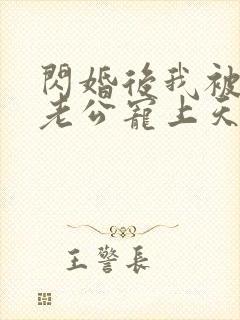 閃婚後我被
老公寵上天
王警長